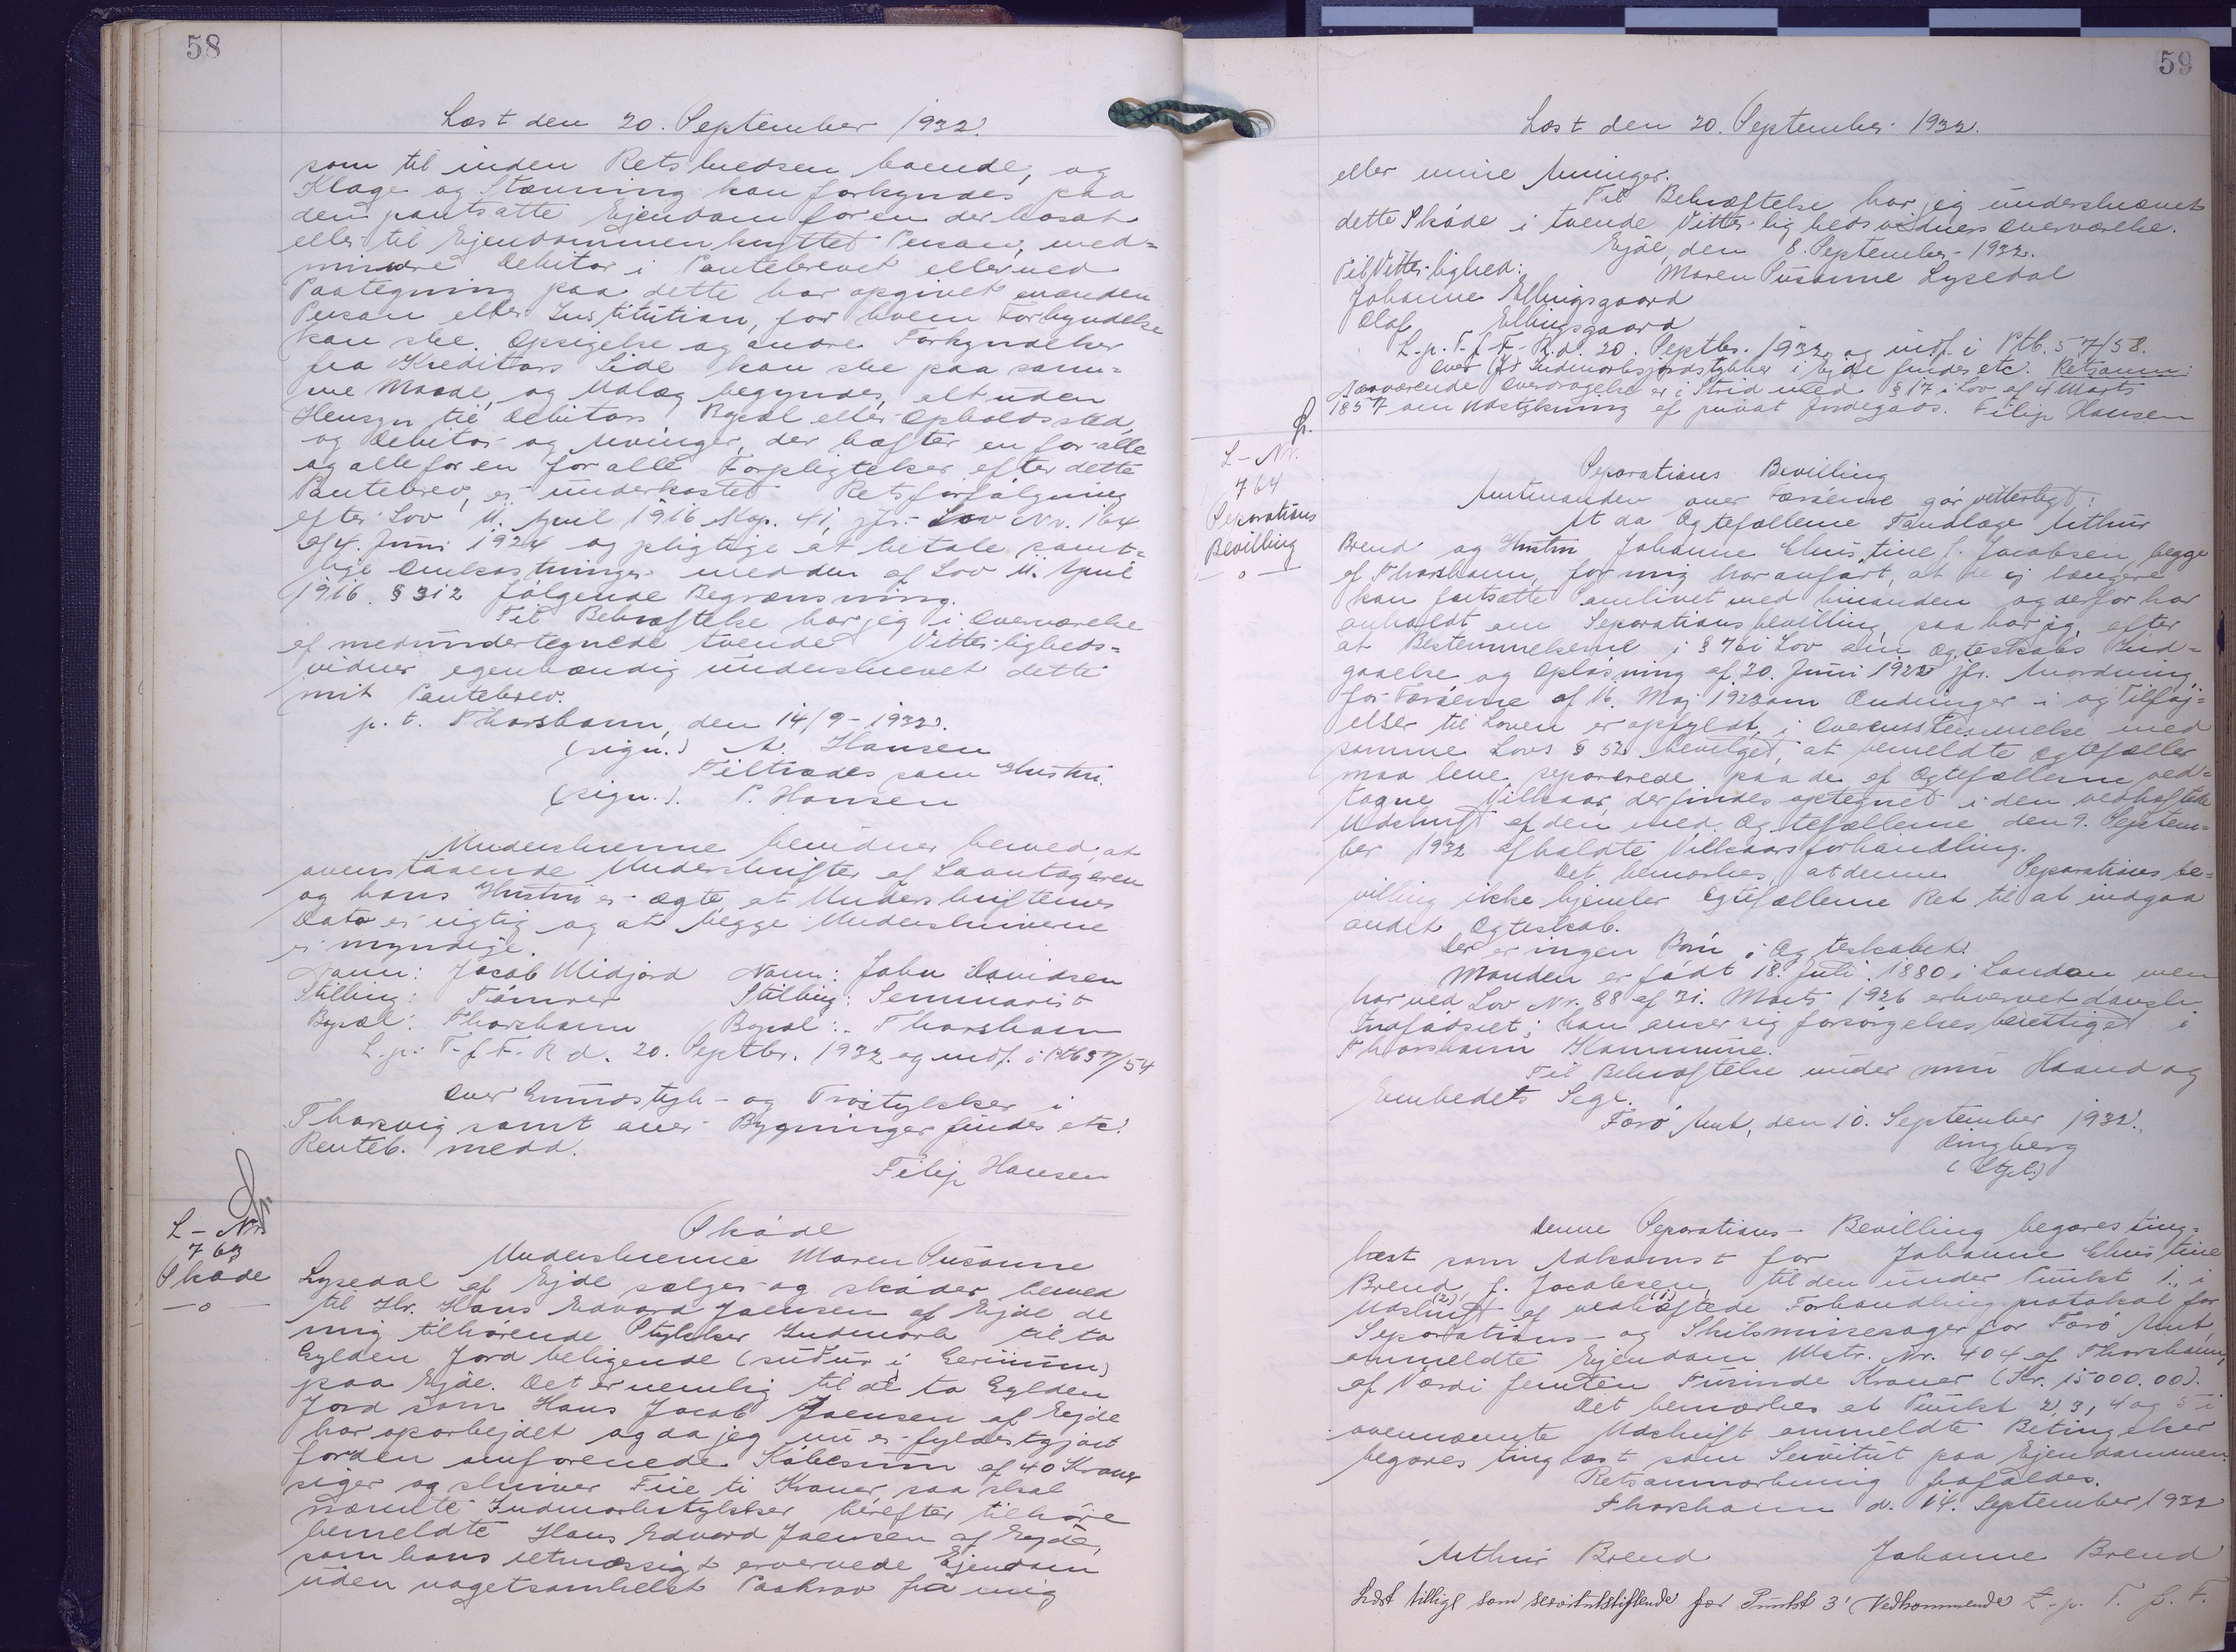 58
Læst den 20. September 1932.
som til inden Retskredsen boende, og
Klage og Stævning kan forkyndes paa
den pantsatte Ejendom for en der bosat
eller til Ejendommen knyttet Person, med=
mindre Debitor i Pantebrevet eller ved
Paategning paa dette har opgivet en anden
Person eller Institution, for hvem Forkyndelse
kan ske. Opsigelse og andre Forkyndelser
fra Kreditors Side kan ske paa sam=
me Maade, og Udlæg begyndes, alt uden
Hensyn til Debitors Bopæl eller Opholdssted,
og Debitor og Arvinger, der hæfter en for alle
og alle for en for alle Forpligtelser efter dette
Pantebrev, er underkastet Retsforfølgning
efter Lov 11. April 1916 Kap. 41, jfr. Lov Nr. 164
af 4. Juni 1924 og pligtige at betale samt=
lige Omkostninger med den af Lov 11. April
1916 § 312 følgende Begrænsning.
Til Bekræftelse har jeg i Overværelse
af medundertegnede tvende Vitterligheds=
vidner egenhændig underskrevet dette
mit Pantebrev.
p. t. Thorshavn, den 14/9 - 1932.
(sign.) A. Hansen
Tiltrædes som Hustru.
(sign.). P. Hansen
Underskrevne bevidner herved, at
ovenstaaende Underskrifter af Laantageren
og hans Hustru er ægte, at Underskrifternes
Dato er rigtig og at begge Underskriverne
er myndige.
Navn: Jacob Midjord Navn: John Davidsen
Stilling: Tømrer Stilling: Seminarist
Bopæl: Thorshavn Bopæl: Thorshavn
L. p. T. f. F. R d. 20. Septbr. 1932 og indf. i Ptb 57/54
Over Grundstyk- og Trøstykker i
Thorsvig samt over Bygninger findes etc.
Renteb. medd.
Filip Hansen
L - Nr.
763
Skøde
— o —
Skøde
Underskrevne Maren Susanne
Lysedal af Ejde sælger og skøder herved
til Hr. Hans Edvard Joensen af Ejde de
mig tilhørende Stykker Indmark til to
Gylden Jord beligende (suður i Gerinum)
paa Ejde. Det er nemlig til de to Gylden
Jord som Hans Jacob Joensen af Ejde
har oparbejdet og da jeg nu er fyldestgjort
for den omforenede Købesum af 40 Kroner
siger og skriver Fire ti Kroner saa skal
nævnte Indmarkstykker herefter tilhøre
bemeldte Hans Edvard Joensen af Ejde,
som hans retmæssigt ervervede Ejendom
uden nogetsomhelst Paakrav fra mig
59
Læst den 20. September 1932.
eller mine Arvinger.
Til Bekræftelse har jeg underskrevet
dette Skøde i tvende Vitterlighedsvidners Overværelse.
Ejde, den 8. September 1932.
Til Vitterlighed: Maren Susanne Lysedal
Johanne Ellingsgaard
Olaf Ellingsgaard
L. p. T. f. F. R. d. 20. Septbr. 1932 og indf. i Ptb. 57/58.
Over Indmarksjordstykker i Ejde findes etc. Retsanm:
Nærværende Overdragelse er i Strid med § 17 i Lov af 4 Marts
1857 om Udstykning af privat Jordegods. Filip Hansen
L - Nr.
764
Separations
Bevilling
— o —
Separations Bevilling
Amtmanden over Færøerne gør vitterligt:
At da Ægtefællerne Tandlæge Arthur
Brend og Hustru Johanne Christine f. Jacobsen, begge
af Thorshavn, for mig har anført, at de ej længere
kan fortsætte Samlivet med hinanden og derfor har
anholdt om Separationsbevilling, saa har jeg, efter
at Bestemmelserne i § 76 i Lov om Ægteskabs Ind=
gaaelse og Opløsning af 30. Juni 1922 jfr. Anordning
for Færøerne af 16. Maj 1923 om Ændringer i og Tilføj=
elser til Loven er opfyldt, i Overensstemmelse med
samme Lovs § 52 bevilget, at bemeldte Ægtefæller
maa leve separerede paa de af Ægtefællerne ved=
tagne Vilkaar, der findes optegnet i den vedhæftede
Udskrift af den med Ægtefællerne den 9. Septem=
ber 1932 afholdte Vilkaarsforhandling.
Det bemærkes, at denne Separations be=
villing ikke hjemler Ægtefællerne Ret til at indgaa
andet Ægteskab.
Der er ingen Børn i Ægteskabet.
Manden er født 18. Juli 1880 i London men
har ved Lov Nr. 88 af 31. Marts 1926 erhvervet dansk
Indfødsret; han anser sig forsørgelsesberettiget i
Thorshavn Kommune.
Til Bekræftelse under min Haand og
Embedets Segl.
Færø Amt, den 10. September 1932.
Ringberg
(Stpl.)
Denne Separations - Bevilling begæres ting=
læst som Adkomst for Johanne Christine
Brend, f. Jacobsen, til den under Punkt 1. i
Udskrift (2) af vedhæftede (1) Forhandlingsprotokol for
Separations- og Skilsmissesager for Færø Amt
ommeldte Ejendom Matr. Nr. 404 af Thorshavn,
af Værdi femten Tusinde Kroner (Kr. 15000.00).
Det bemærkes at Punkt 2, 3, 4 og 5 i
ovennævnte Udskrift ommeldte Betingelser
begæres tinglæst som Servitut paa Ejendommen.
Retsanmærkning frafaldes.
Thorshavn d. 14. September 1932
Arthur Brend Johanne Brend
Læst tillige som servitutstiftende for Punkt 3' Vedkommende L. p. T. f. F.